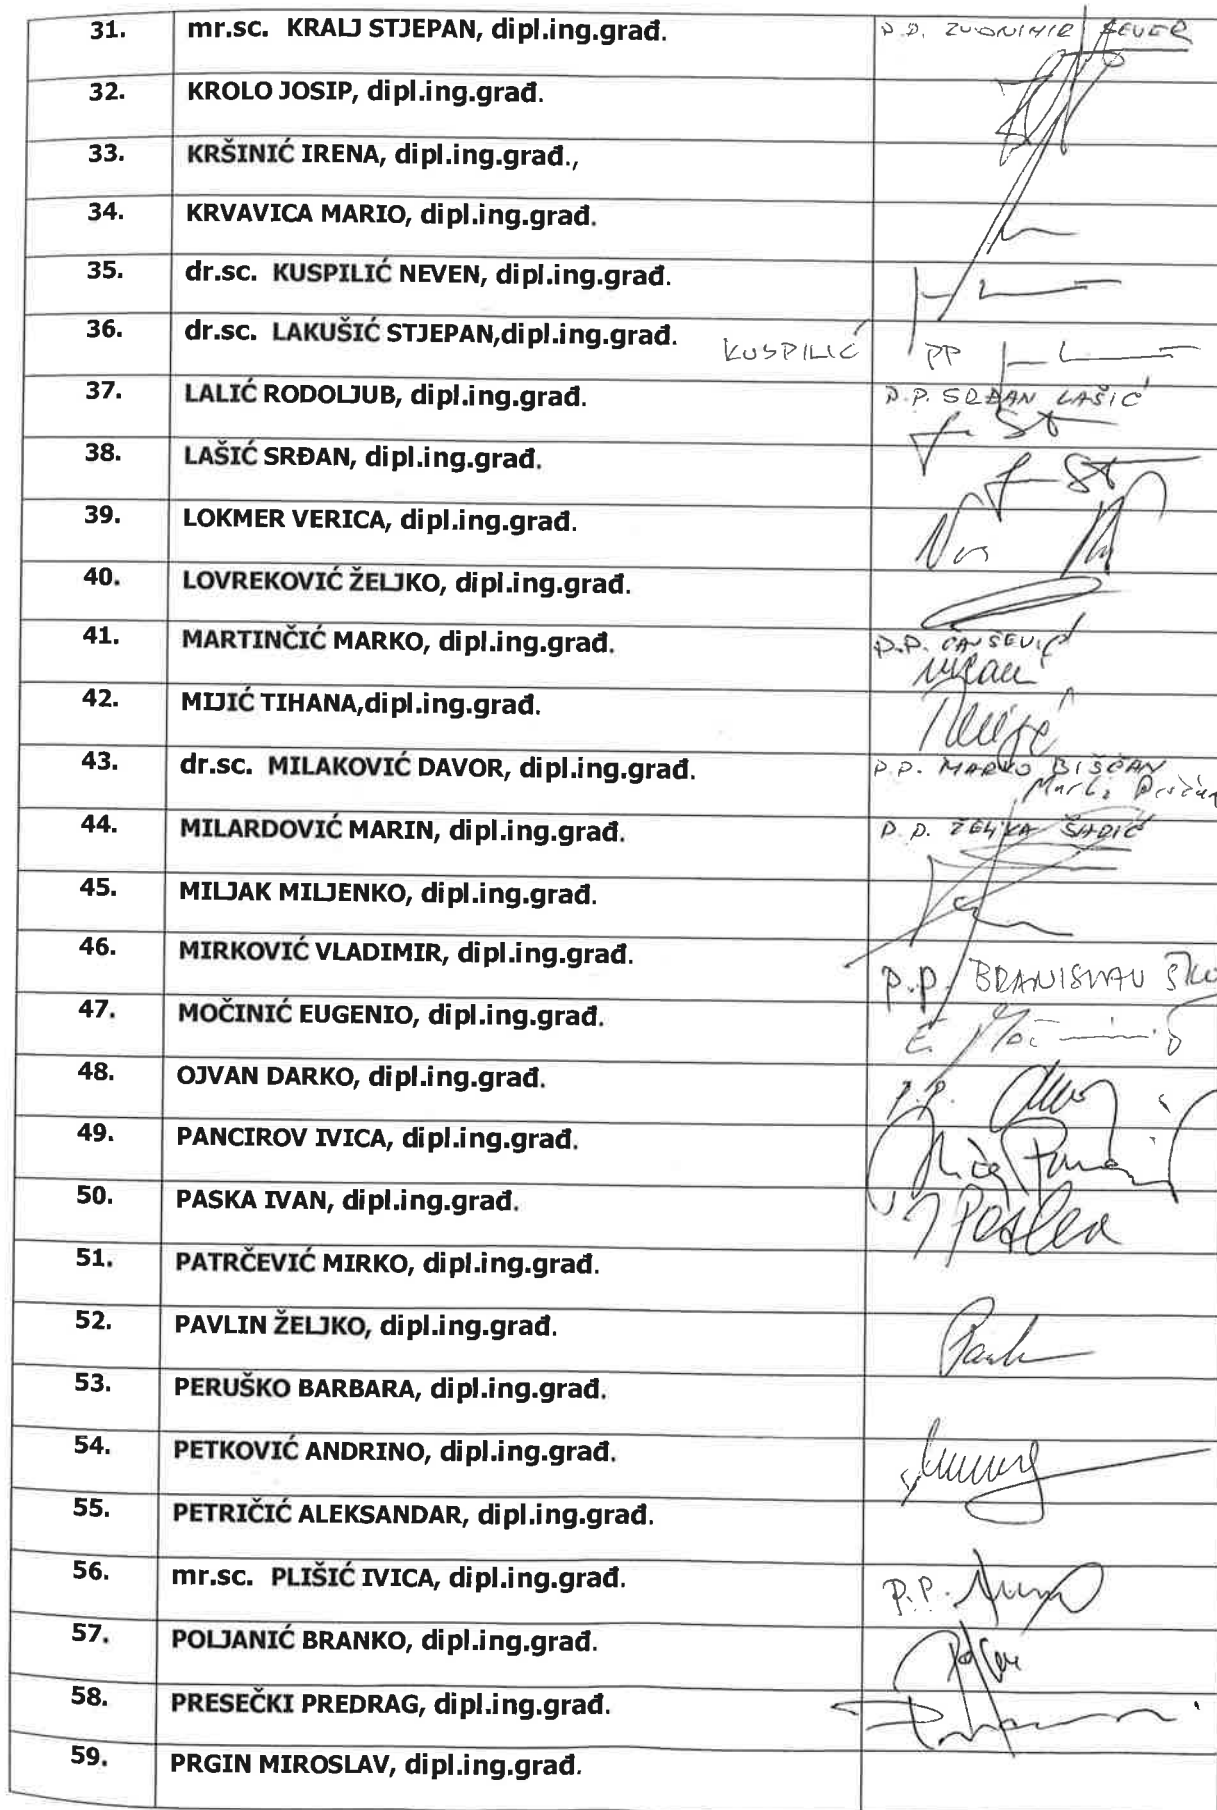 31. mr.sc. KRALJ STJEPAN, dipl.ing.građ. P.P. ZVONIMIR SEVER
32. KROLO JOSIP, dipl.ing.građ.
33. KRŠINIĆ IRENA, dipl.ing.građ.,
34. KRVAVICA MARIO, dipl.ing.građ.
35. dr.sc. KUSPILIĆ NEVEN, dipl.ing.građ.
36. dr.sc. LAKUŠIĆ STJEPAN,dipl.ing.građ. KUSPILIĆ PP
37. LALIĆ RODOLJUB, dipl.ing.građ. P.P. SRĐAN LAŠIĆ
38. LAŠIĆ SRĐAN, dipl.ing.građ.
39. LOKMER VERICA, dipl.ing.građ.
40. LOVREKOVIĆ ŽELJKO, dipl.ing.građ.
41. MARTINČIĆ MARKO, dipl.ing.građ. P.P.
42. MIJIĆ TIHANA,dipl.ing.građ.
43. dr.sc. MILAKOVIĆ DAVOR, dipl.ing.građ. P.P. MARKO BIŠĆAN
44. MILARDOVIĆ MARIN, dipl.ing.građ. P.P. ŽELJKA
45. MILJAK MILJENKO, dipl.ing.građ.
46. MIRKOVIĆ VLADIMIR, dipl.ing.građ. P.P. BRANISLAV
47. MOČINIĆ EUGENIO, dipl.ing.građ.
48. OJVAN DARKO, dipl.ing.građ. P.P.
49. PANCIROV IVICA, dipl.ing.građ.
50. PASKA IVAN, dipl.ing.građ.
51. PATRČEVIĆ MIRKO, dipl.ing.građ.
52. PAVLIN ŽELJKO, dipl.ing.građ.
53. PERUŠKO BARBARA, dipl.ing.građ.
54. PETKOVIĆ ANDRINO, dipl.ing.građ.
55. PETRIČIĆ ALEKSANDAR, dipl.ing.građ.
56. mr.sc. PLIŠIĆ IVICA, dipl.ing.građ. P.P.
57. POLJANIĆ BRANKO, dipl.ing.građ.
58. PRESEČKI PREDRAG, dipl.ing.građ.
59. PRGIN MIROSLAV, dipl.ing.građ.